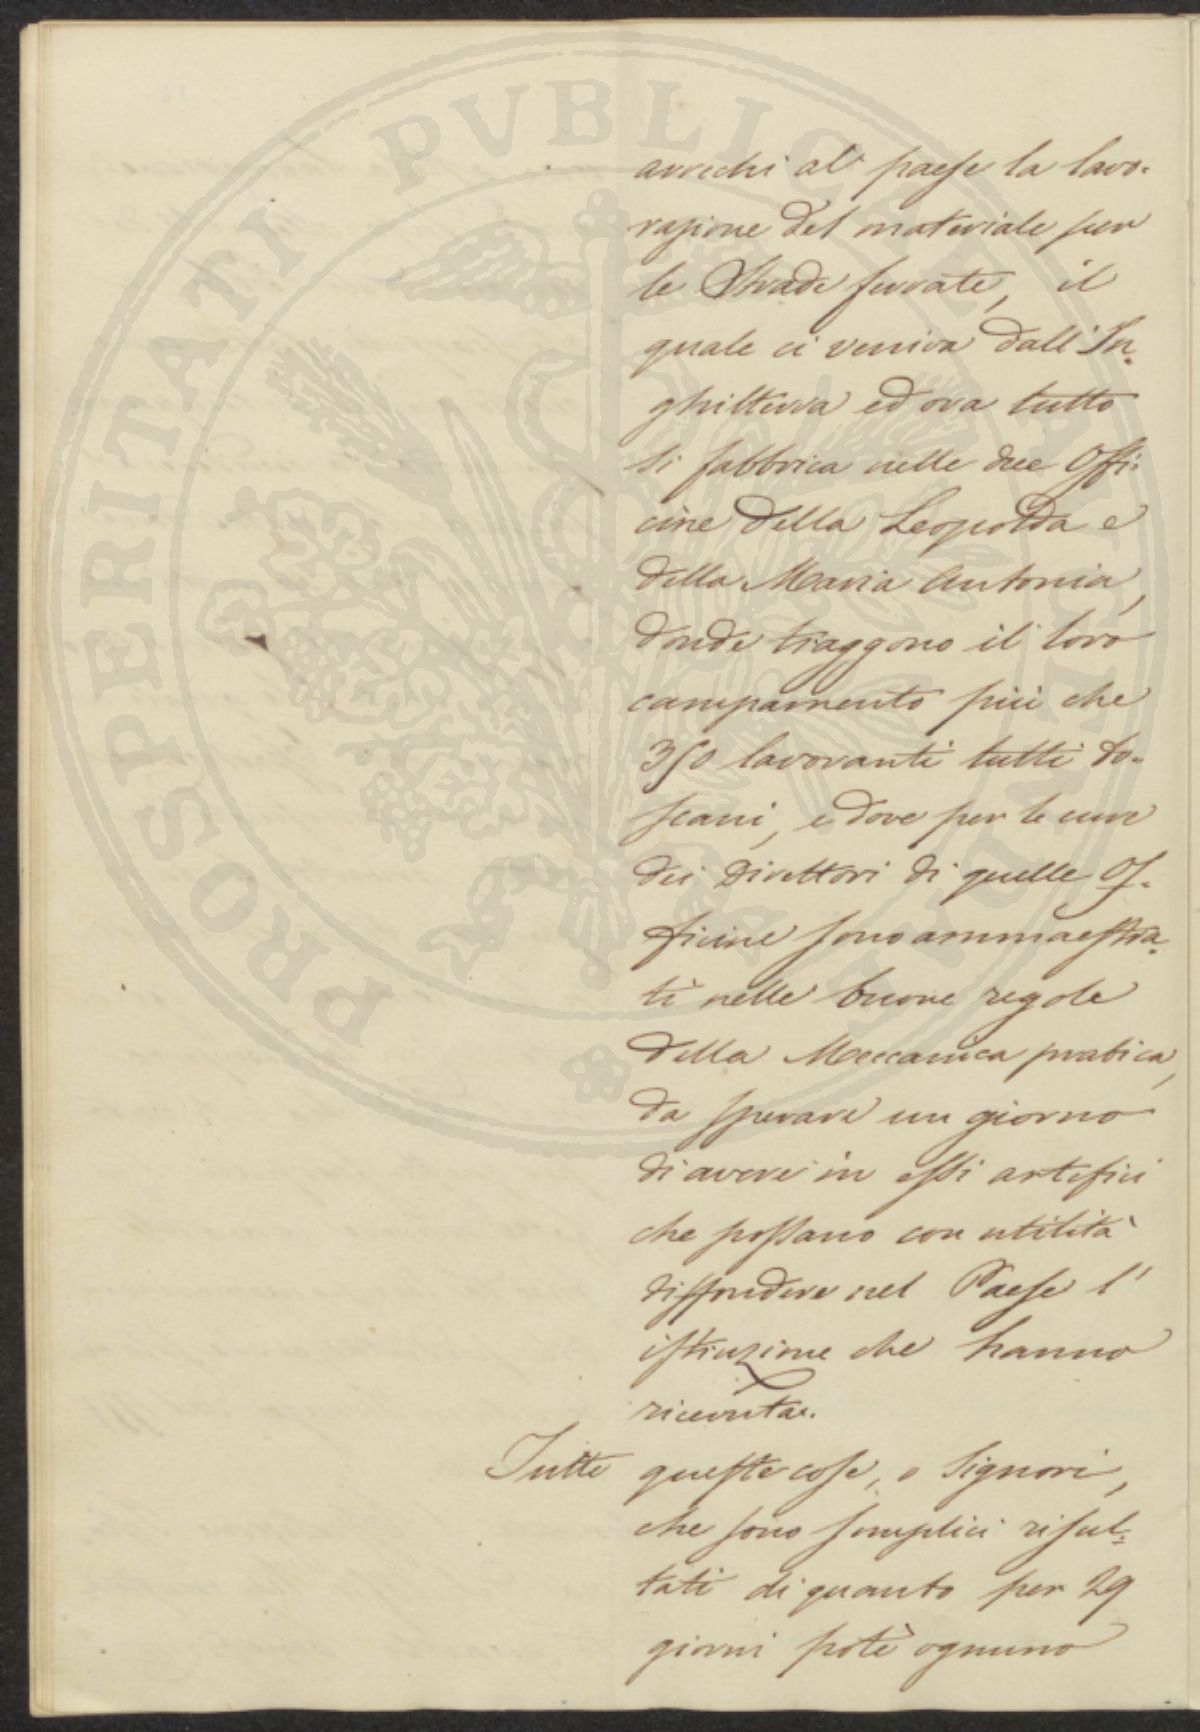 PROSPERITATI PVBLICAE
arrechi al paese la lavo-
razione del materiale per
le Strade ferrate, il
quale ci veniva dall'In-
ghilterra ed ora tutto
si fabbrica nelle due Offi-
cine della Leopolda e
della Maria Antonia,
donde traggono il loro
campamento più che
350 lavoranti tutti To-
scani, e dove per le cure
dei Direttori di quelle Of-
ficine sono ammaestra-
ti nelle buone regole
della Meccanica pratica,
da sperare un giorno
di avere in essi artefici
che possano con utilità
diffondere nel Paese l'
istruzione che hanno
ricevuta.
Tutte queste cose, o Signori,
che sono semplici risul-
tati di quanto per 29
giorni potè ognuno